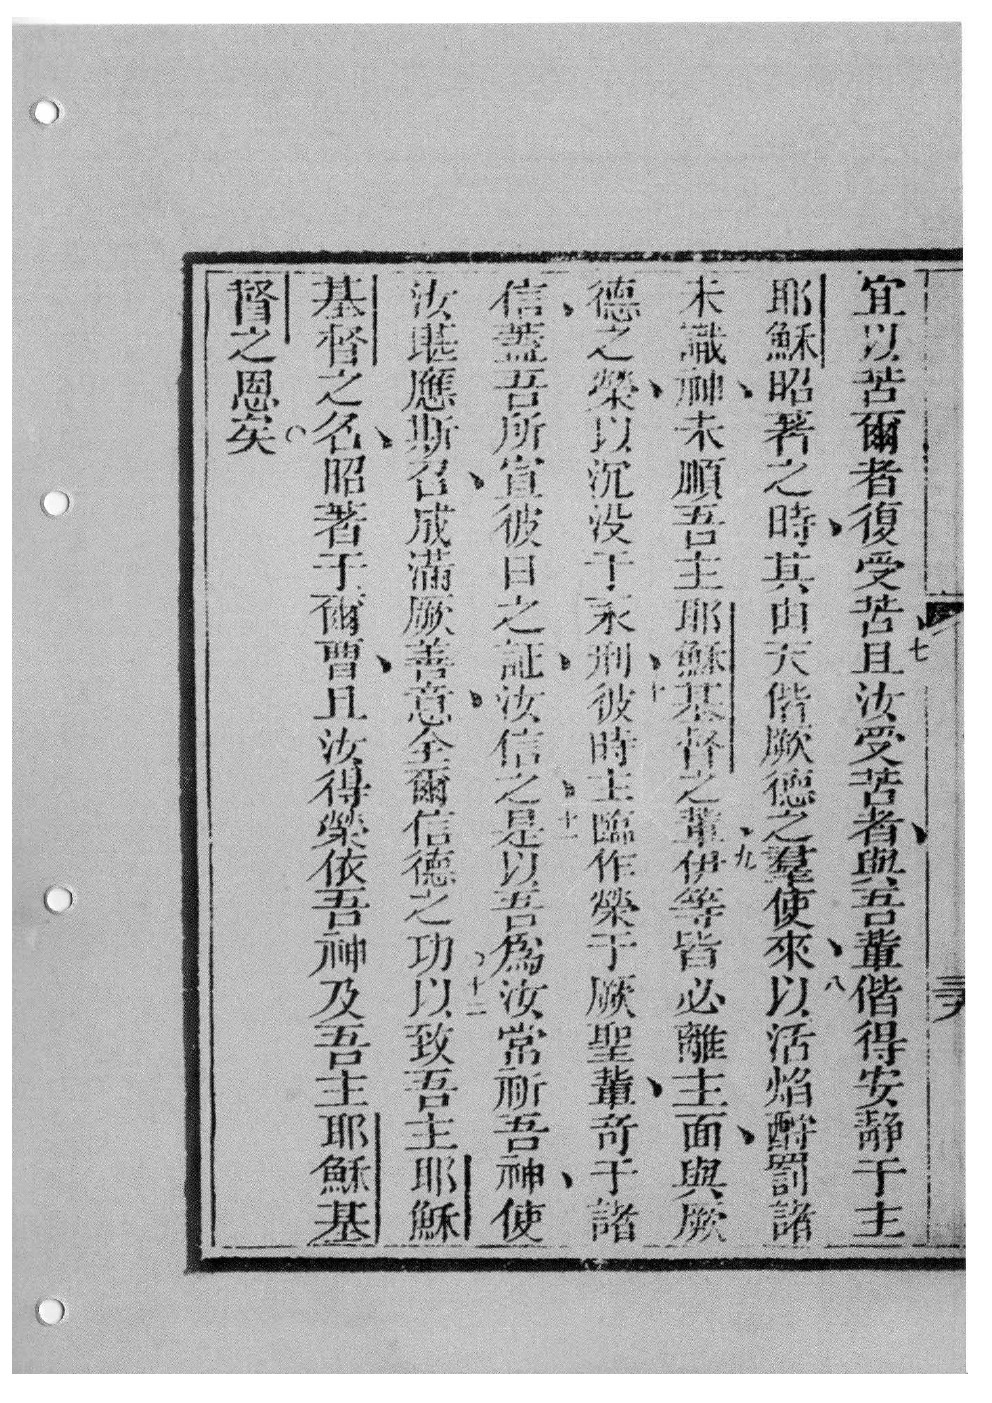 宜以苦爾者復受苦七且汝受苦者、與吾輩偕得安靜于主
耶穌昭著之時、其由天偕厥德之羣使來、八以活焰酹罰諸
未識神、未順吾主耶穌基督之輩、九伊等皆必離主面、與厥
德之榮、以沉没于永刑、十彼時主臨作榮于厥聖輩、奇于諸
信、蓋吾所宣彼日之証、汝信之、十一是以吾為汝常祈吾神、使
汝堪應斯召、成滿厥善意、全爾信德之功、十二以致吾主耶穌
基督之名、昭著于爾曹、且汝得榮依吾神及吾主耶穌基
督之恩矣。